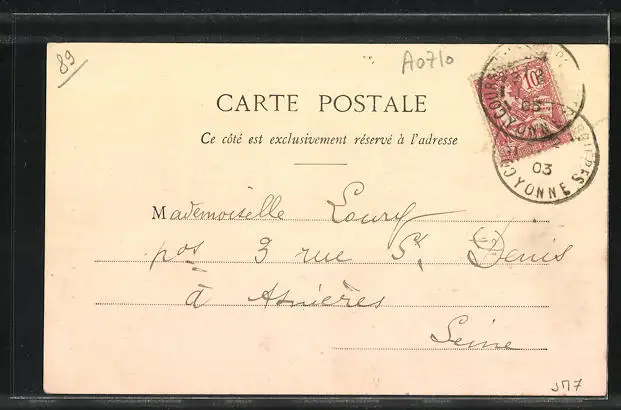 89
A0710
CARTE POSTALE
Ce côté est exclusivement réservé à l'adresse
10
03
YONNE
Mademoiselle Loury
pos 3 rue St Denis
à Asnières
Seine
JM7